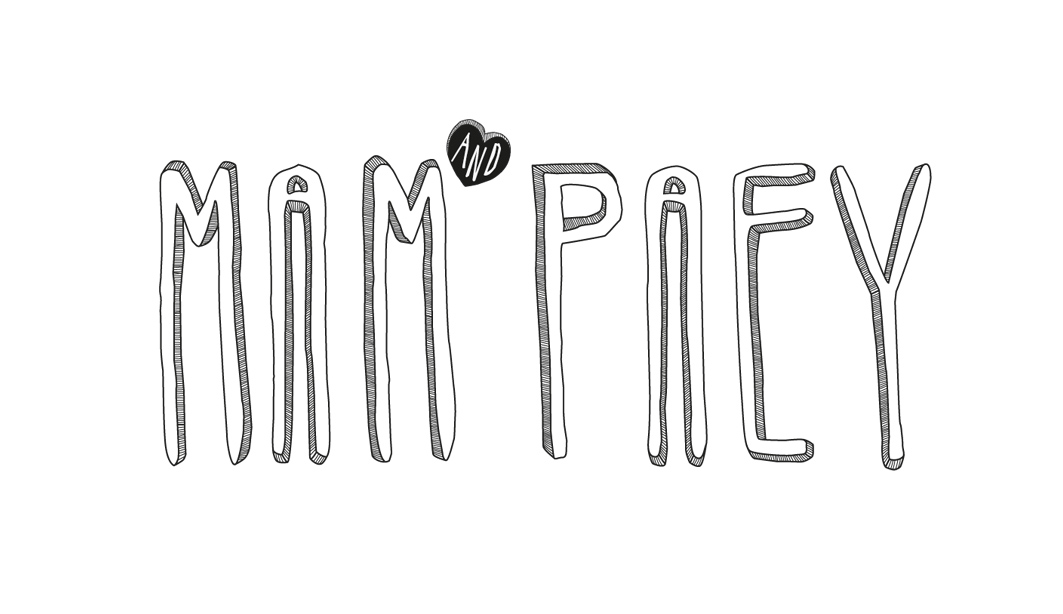 MAM AND PAEY